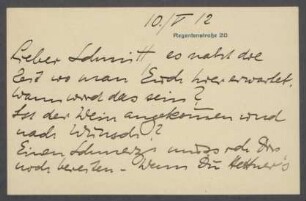 10./V 12
Regentenstraße 20
Lieber Schmitt es naht die
Zeit wo man Euch hier erwartet,
wann wird das sein?
Ist der Wein angekommen und
nach Wunsch?
Einen Schmerz muss ich Dir
noch bereiten – Wenn Du Hettner's